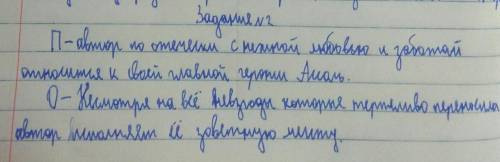 Задание №2
П-автор по отечески с нежной любовью и заботай
относится к своей главной герони Ассоль.
О-Несмотря на всё невзгоды которые терпяливо переносила
автор исполняет её зоветрную мечту.